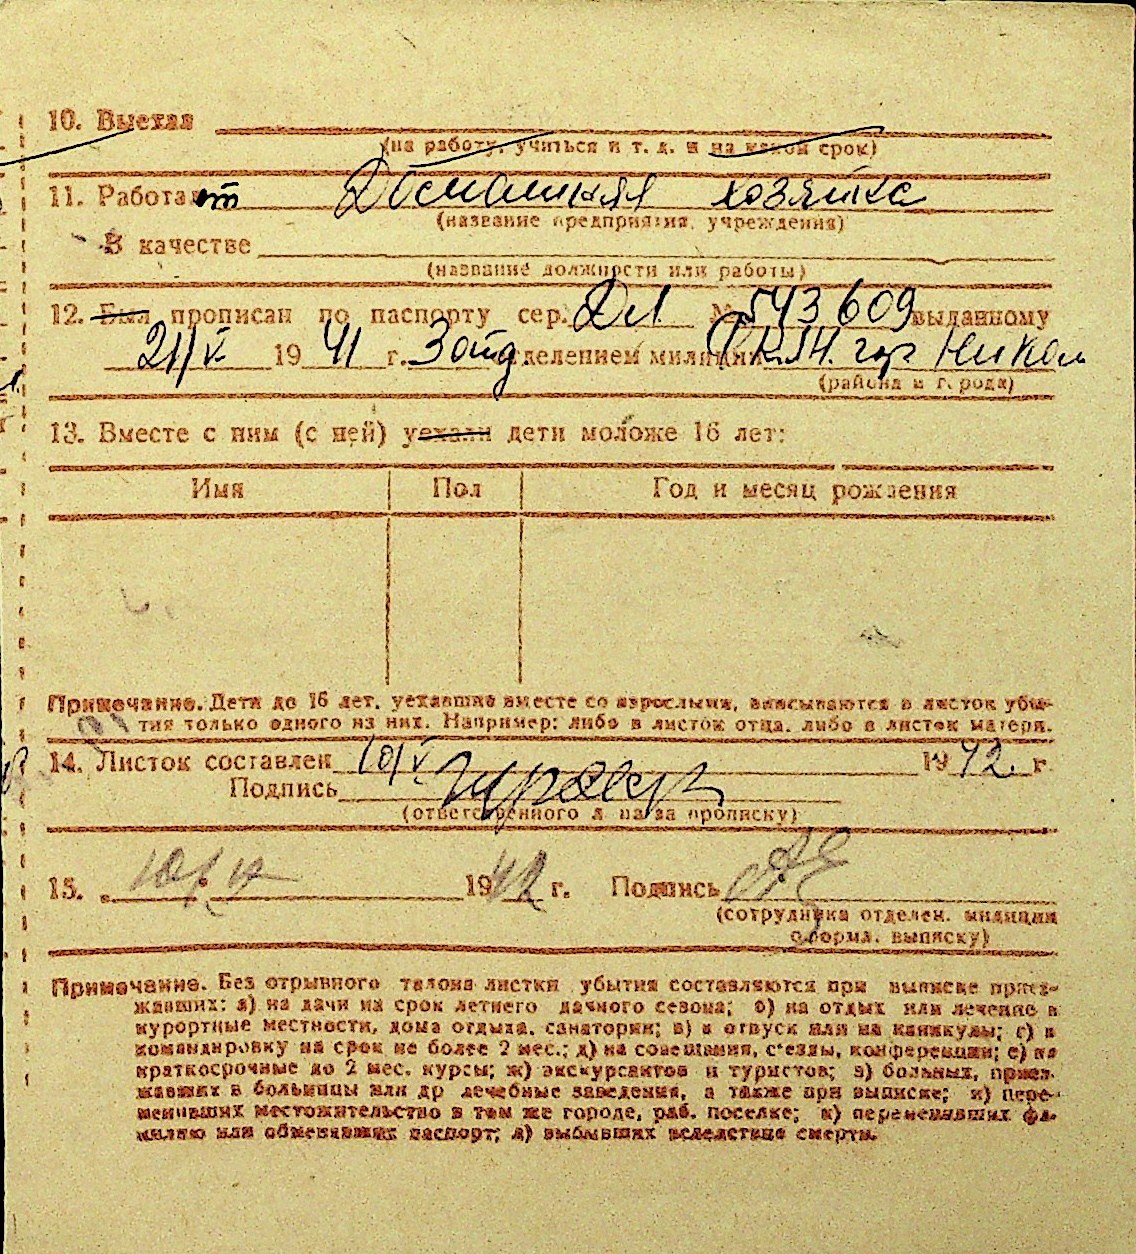 10. Выехал
(на работу, учиться и т. д. и на какой срок)
11. Работает Домашняя хозяйка
(название предприятия, учреждения)
В качестве
(название должности или работы)
12. Был прописан по паспорту сер. № 543609 выданному
21/V 1941 г. 3 отделением милиции гор Никол
(района и города)
13. Вместе с ним (с ней) уехали дети моложе 16 лет:
Имя Пол Год и месяц рождения
Примечание. Дети до 16 лет, уехавшие вместе со взрослыми, вписываются в листок убы-
тия только одного из них. Например: либо в листок отца, либо в листок матери.
14. Листок составлен 10/V 1942 г
Подпись
(ответственного л на за прописку)
15. 1942 г. Подпись
(сотрудника отделен. милиции
оформл. выписку)
Примечание. Без отрывного талона листки убытия составляются при выписке приез-
жавших: а) на дачи на срок летнего дачного сезона; б) на отдых или лечение в
курортные местности, дома отдыха, санатории; в) в отпуск или на каникулы; г) в
командировку на срок не более 2 мес.; д) на совещания, с'езды, конференции; е) на
краткосрочные до 2 мес. курсы; ж) экскурсантов и туристов; з) больных, приез-
жавших в больницы или др лечебные заведения, а также при выписке; и) пере-
менивших местожительство в том же городе, раб. поселке; к) переменявших фа-
милию или обменявших паспорт; л) выбывших вследствие смерти.